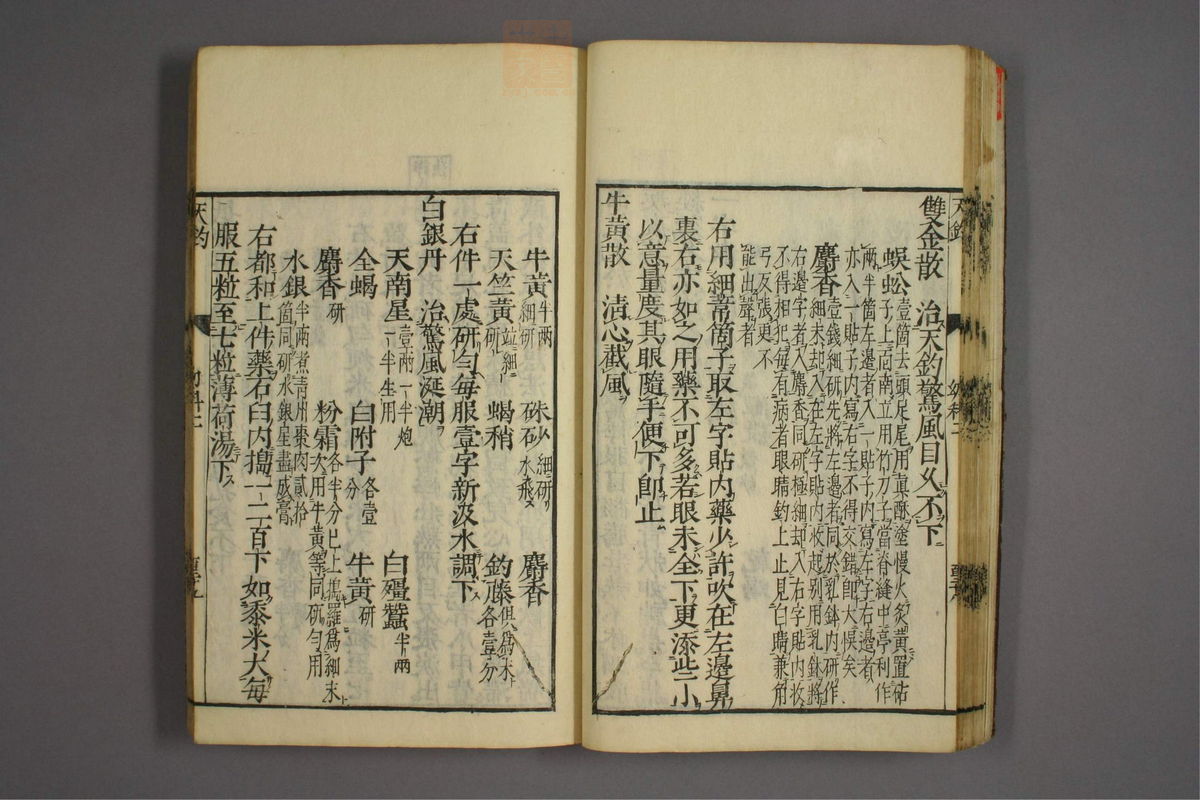 雙金散　治天釣驚風目久不下
蜈蚣壹箇去頭足尾用真酥塗慢火炙黄置砧
子上面南立用竹刀子當脊縫中亭利作
兩半箇左邊者入一貼子内寫左字右邊者
亦入一貼子内寫右字不得交錯即大悞矣
麝香壹錢細研先將左邊者同於乳鉢内研作
細末却入在左字貼内收起别用乳鉢將
右邊字者入麝香同研極細却入右字貼内收
不得相犯每有病者眼睛釣上止見白睛兼角
弓反張更不
能出聲者
右用細葦筒子取左字貼内藥少許吹在左邊鼻
裏右亦如之用藥不可多若眼未全下更添些小
以意量度其眼隨手便下即止
牛黄散　清心截風
牛黄半兩細研　硃砂細研水飛　麝香
天竺黄並細研　蝎稍　釣藤俱爲末各壹分
右件一處研勻每服壹字新汲水調下
白銀丹　治驚風涎潮
天南星壹兩一半炮一半生用　白殭蠶半兩
全蝎　白附子各壹分　牛黄研
麝香研　粉霜各半分已上擣羅爲細末次用牛黄等同研勻用
水銀半兩煮青州棗肉貳拾箇同研水銀星盡成膏
右都和上件藥石臼内擣一二百下如黍米大每
服五粒至七粒薄荷湯下
天釣
幼科二